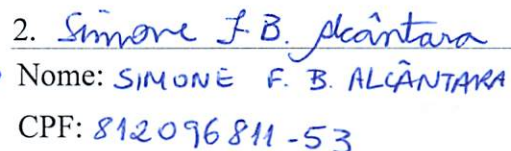 2. Simone F. B. Alcântara
Nome: SIMONE F. B. ALCÂNTARA
CPF: 812096811-53